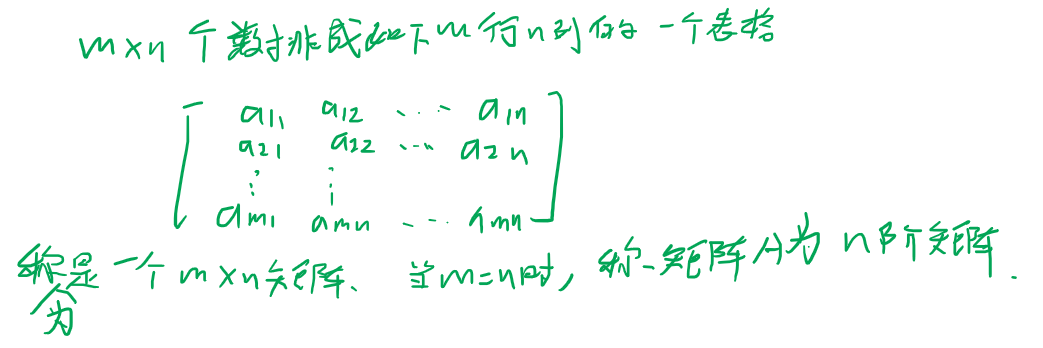 m×n个数排成如下m行n列的一个表格
a11 a12 ... a1n
a21 a22 ... a2n
⋮ ⋮
am1 amn ... amn
称是一个m×n矩阵、当m=n时,称矩阵A为n阶矩阵.
为